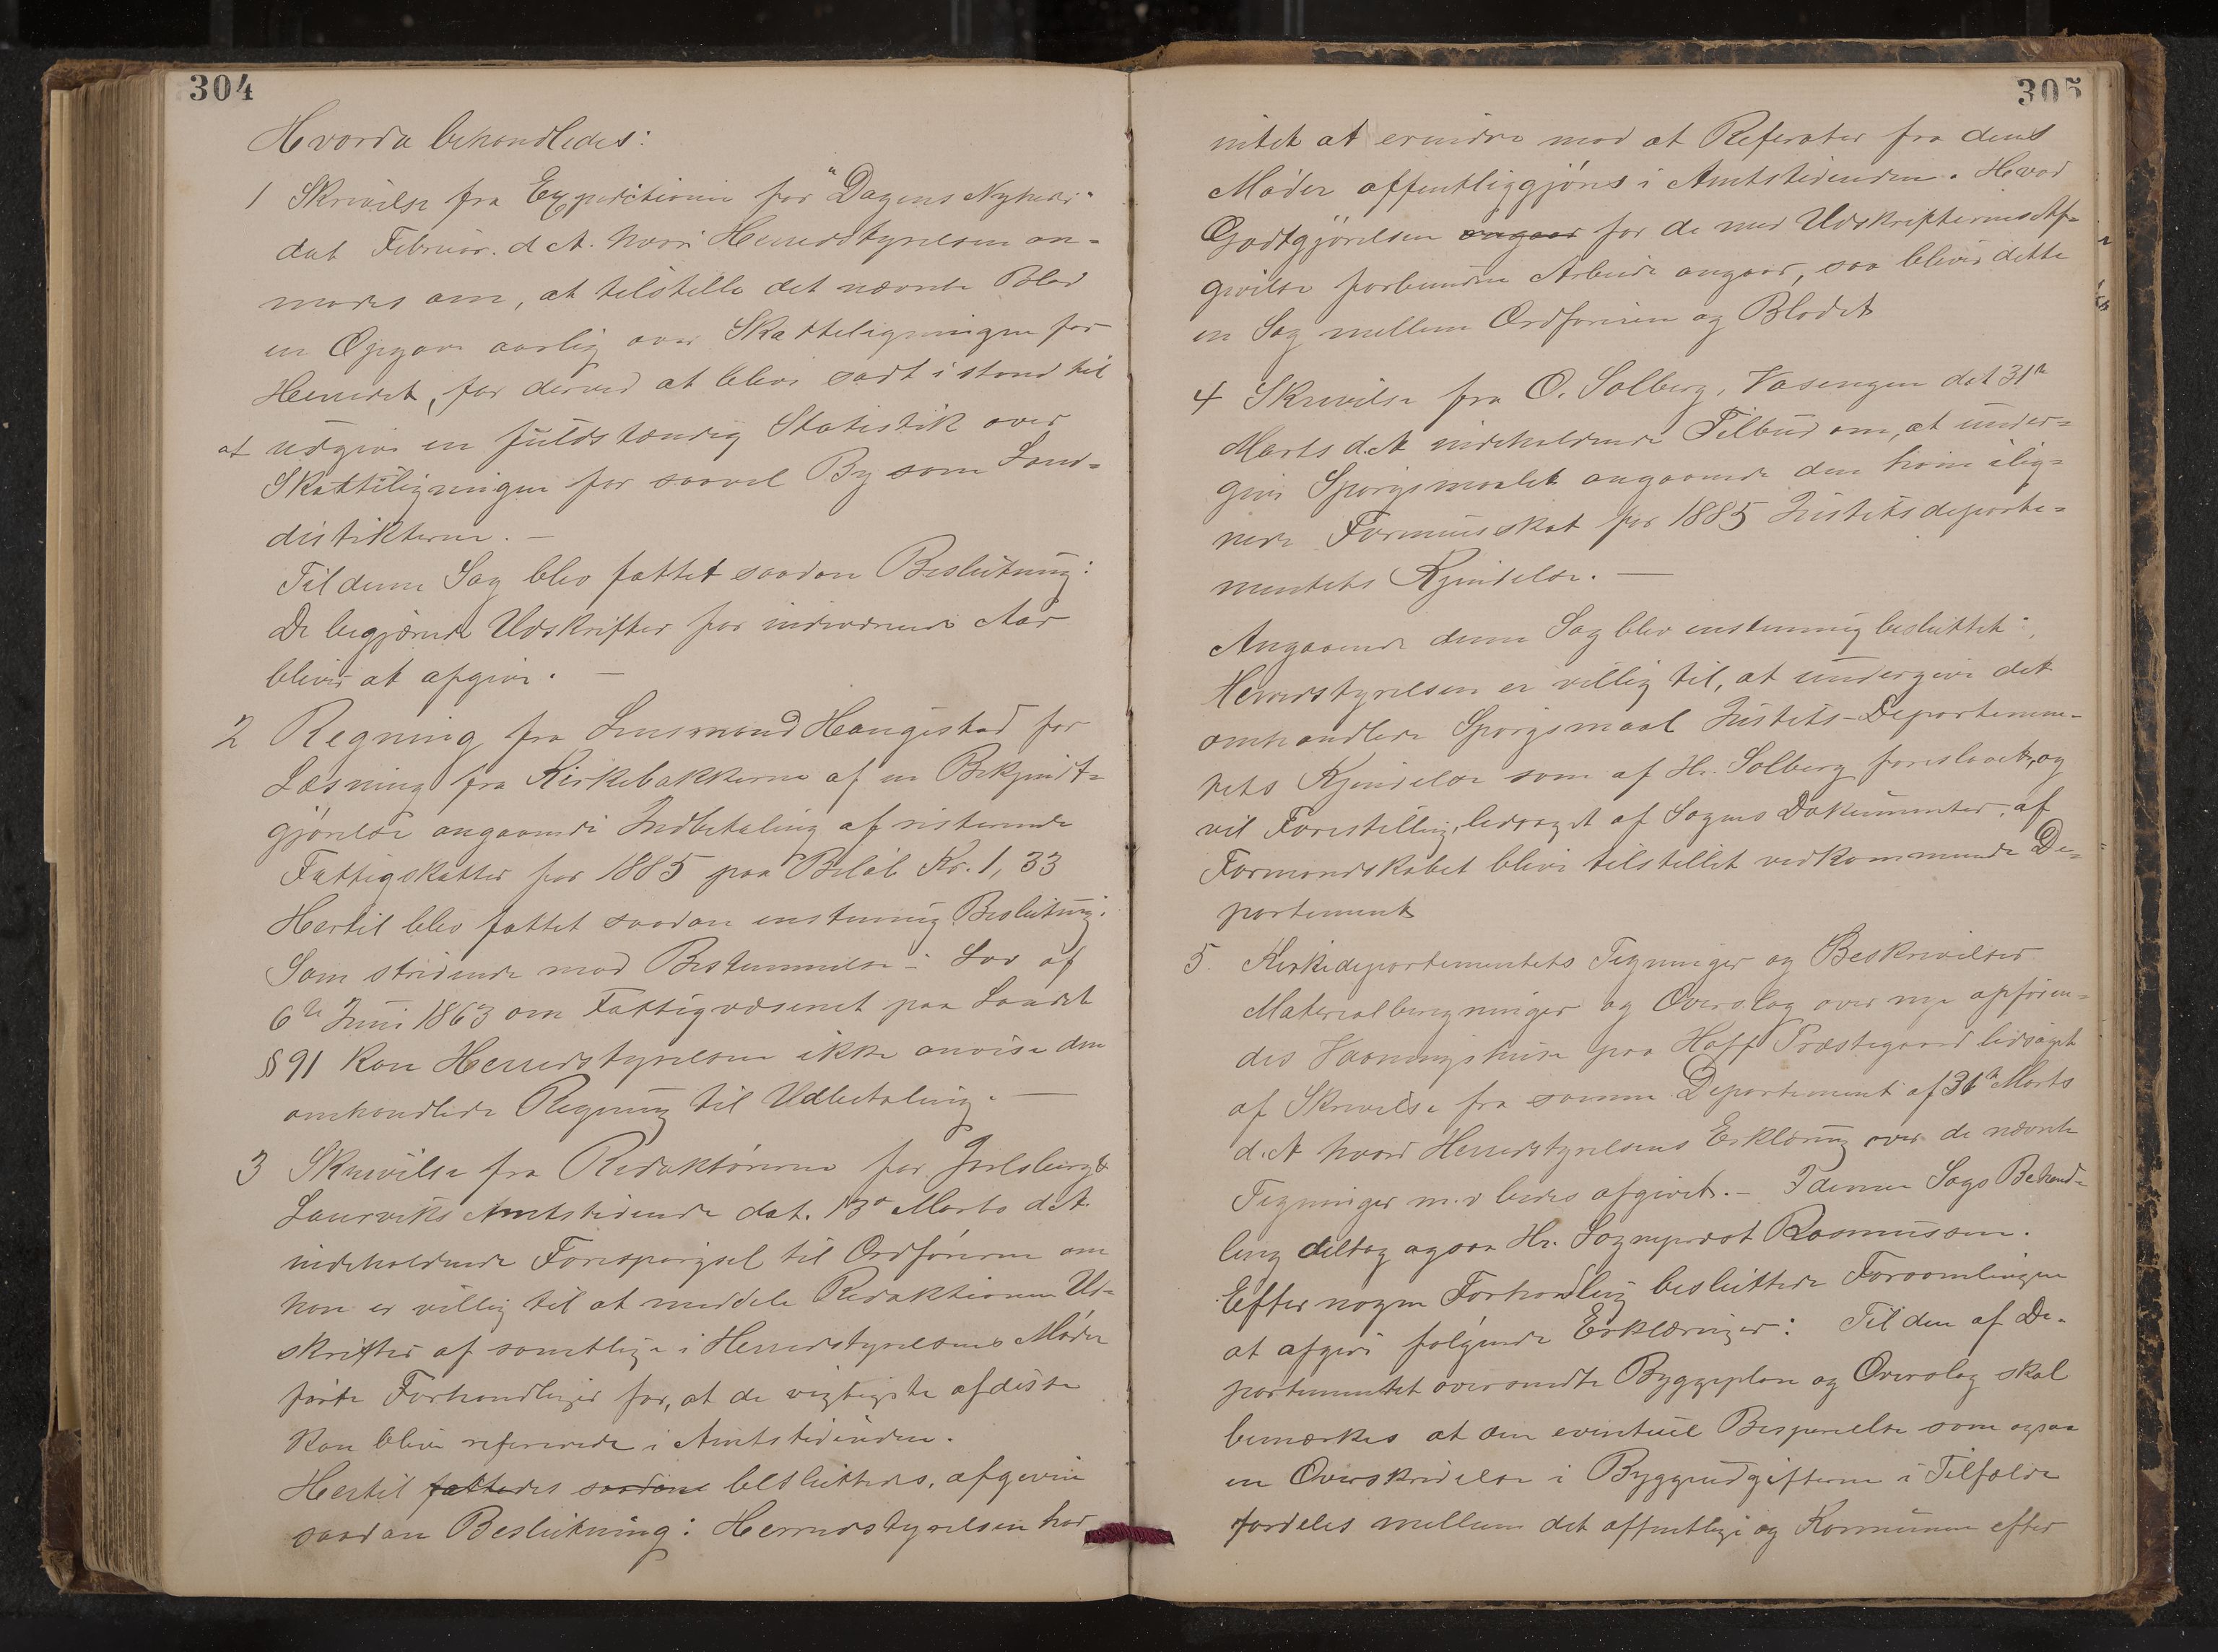 304
Hvorda behandledes:
1 Skrivelse fra Expeditionen for "Dagens Nyheder"
dat Februar. d A. hvori Herredstyrelsen an-
modes om, at tilstille det nævnte Blad
en Opgave aarlig over Skatteligningen for
Herredet, for derved at blive sadt i stand til
at udgive en fuldstændig Statistik over
Skatteligningen for saavel By som Land-
distikterne. —
Til denne Sag blev fattet saadan Beslutning:
De begjærede Udskrifter for indeværende Aar
bliver at afgive. —
2 Regning fra Lensmand Haugestad for
Læsning fra Kirkebakkerne af en Bekjendt-
gjørelse angaaende Indbetaling af resterende
Fattigskatter for 1885 paa Beløb Kr. 1,33
Hertil blev fattet saadan enstemig Beslutning:
Som stridende mod Bestemmelse i Lov af
6te Juni 1863 om Fattigvæsenet paa Landet
§ 91 kan Herredstyrelsen ikke anvise den
omhandlede Regning til Udbetaling. —
3 Skrivelse fra Redaktørerne for Jarlsberg &
Laurviks Amtstidende dat. 13de Marts d A.
indeholdende Forespørgsel til Ordføreren om
han er villig til at meddele Redaktionen Ud-
skrifter af samtlige i Herredstyrelsens Møder
førte Forhandlinger for, at de vigtigste af disse
kan blive refererede i Amtstidenden.
Hertil fattedes saadane besluttedes, afgiven
saadan Beslutning: Herredstyrelsen har
305
intet at erindre mod at Referater fra dens
Møder offentliggjøres i Amtstidenden. Hvad
Godtgjørelsen angaar for de med Udskrifternes Af-
givelse forbundne Arbeide angaar, saa bliver dette
en Sag mellem Ordføreren og Bladet
4 Skrivelse fra O. Solberg, Vasengen dat 31te
Marts d.A indeholdende Tilbud om, at under-
give Spørgsmaalet angaaende den ham ilig-
nede Formueskat for 1885 Justitsdeparte-
mentets Kjendelse. —
Angaaende denne Sag blev enstemmig besluttet:
Herredstyrelsen er villig til, at undergive det
omhandlede Spørgsmaal Justits-Departemen-
tets Kjendelse som af Hr. Solberg foreslaaet, og
vil Forestilling, ledsaget af Sagens Dokumenter, af
Formandskabet blive tilstillet vedkommende De-
partement
5. Kirkedepartementets Tegninger og Beskrivelser
Materialberegninger og Overslag over nye opføren-
des Vaaningshuse paa Hoff Præstegaard ledsaget
af Skrivelse fra samme Departement af 31te Marts
d.A hvori Herredstyrelsens Erklæring over de nævnte
Tegninger m.v bedes afgivet. — I denne Sags Behand-
ling deltog ogsaa Hr. Sogneprest Rasmussen.
Efter nogen Forhandling besluttede Forsamlingen
at afgive følgende Erklæringer: Til den af De-
partementet oversendte Byggeplan og Overslag skal
bemærkes at den eventuel Besparelse som ogsaa
en Overskridelse i Byggeudgifterne i Tilfælde
fordeles mellem det offentlige og Kommunen efter